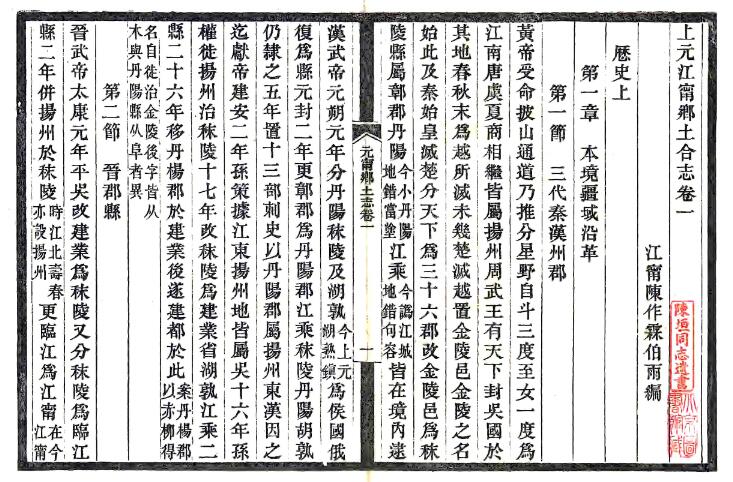 上元江甯鄉土合志卷一
江甯陳作霖伯雨編
歷史上
第一章　本境疆域沿革
第一節　三代秦漢州郡
黃帝受命披山通道乃推分星野自斗三度至女一度爲
江南唐虞夏商相繼皆屬揚州周武王有天下封吳國於
其地春秋末爲越所滅未幾楚滅越置金陵邑金陵之名
始此及秦始皇滅楚分天下爲三十六郡改金陵邑爲秣
陵縣屬鄣郡丹陽今小丹陽地錯當塗江乘今譌江城地錯句容皆在境內逮
元甯鄉土志卷一
一
漢武帝元朔元年分丹陽秣陵及湖孰今上元湖熟鎮爲侯國俄
復爲縣元封二年更鄣郡爲丹陽郡江乘秣陵丹陽胡孰
仍隸之五年置十三部刺史以丹陽郡屬揚州東漢因之
迄獻帝建安二年孫策據江東揚州地皆屬吳十六年孫
權徙揚州治秣陵十七年改秣陵爲建業省湖孰江乘二
縣二十六年移丹楊郡於建業後遂建都於此案丹楊郡以赤柳得
名自徙治金陵後字皆从木與丹陽縣从阜者異
第二節　晉郡縣
晉武帝太康元年平吳改建業爲秣陵又分秣陵爲臨江
縣二年併揚州於秣陵時江北壽春亦設揚州更臨江爲江甯在今江甯
陳垣同志遺書